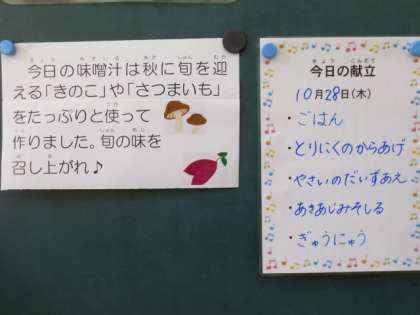 今日の味噌汁は秋に旬を迎
える「きのこ」や「さつまいも」
をたっぷりと使って
作りました。旬の味を
召し上がれ♪
今日の献立
10月28日(木)
・ごはん
・とりにくのからあげ
・やさいのだいずあえ
・あきあじみそしる
・ぎゅうにゅう